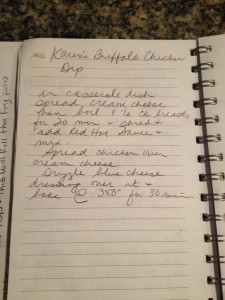 Karen's Buffalo Chicken
Dip
in casserole dish
spread cream cheese
then boil 1 ½ ck breasts
for 20 min - shred +
add Red Hot Sauce +
mix.
Spread chicken over
cream cheese
Drizzle blue cheese
dressing over it +
bake @ 350° for 30 min
This will fill the fry pan